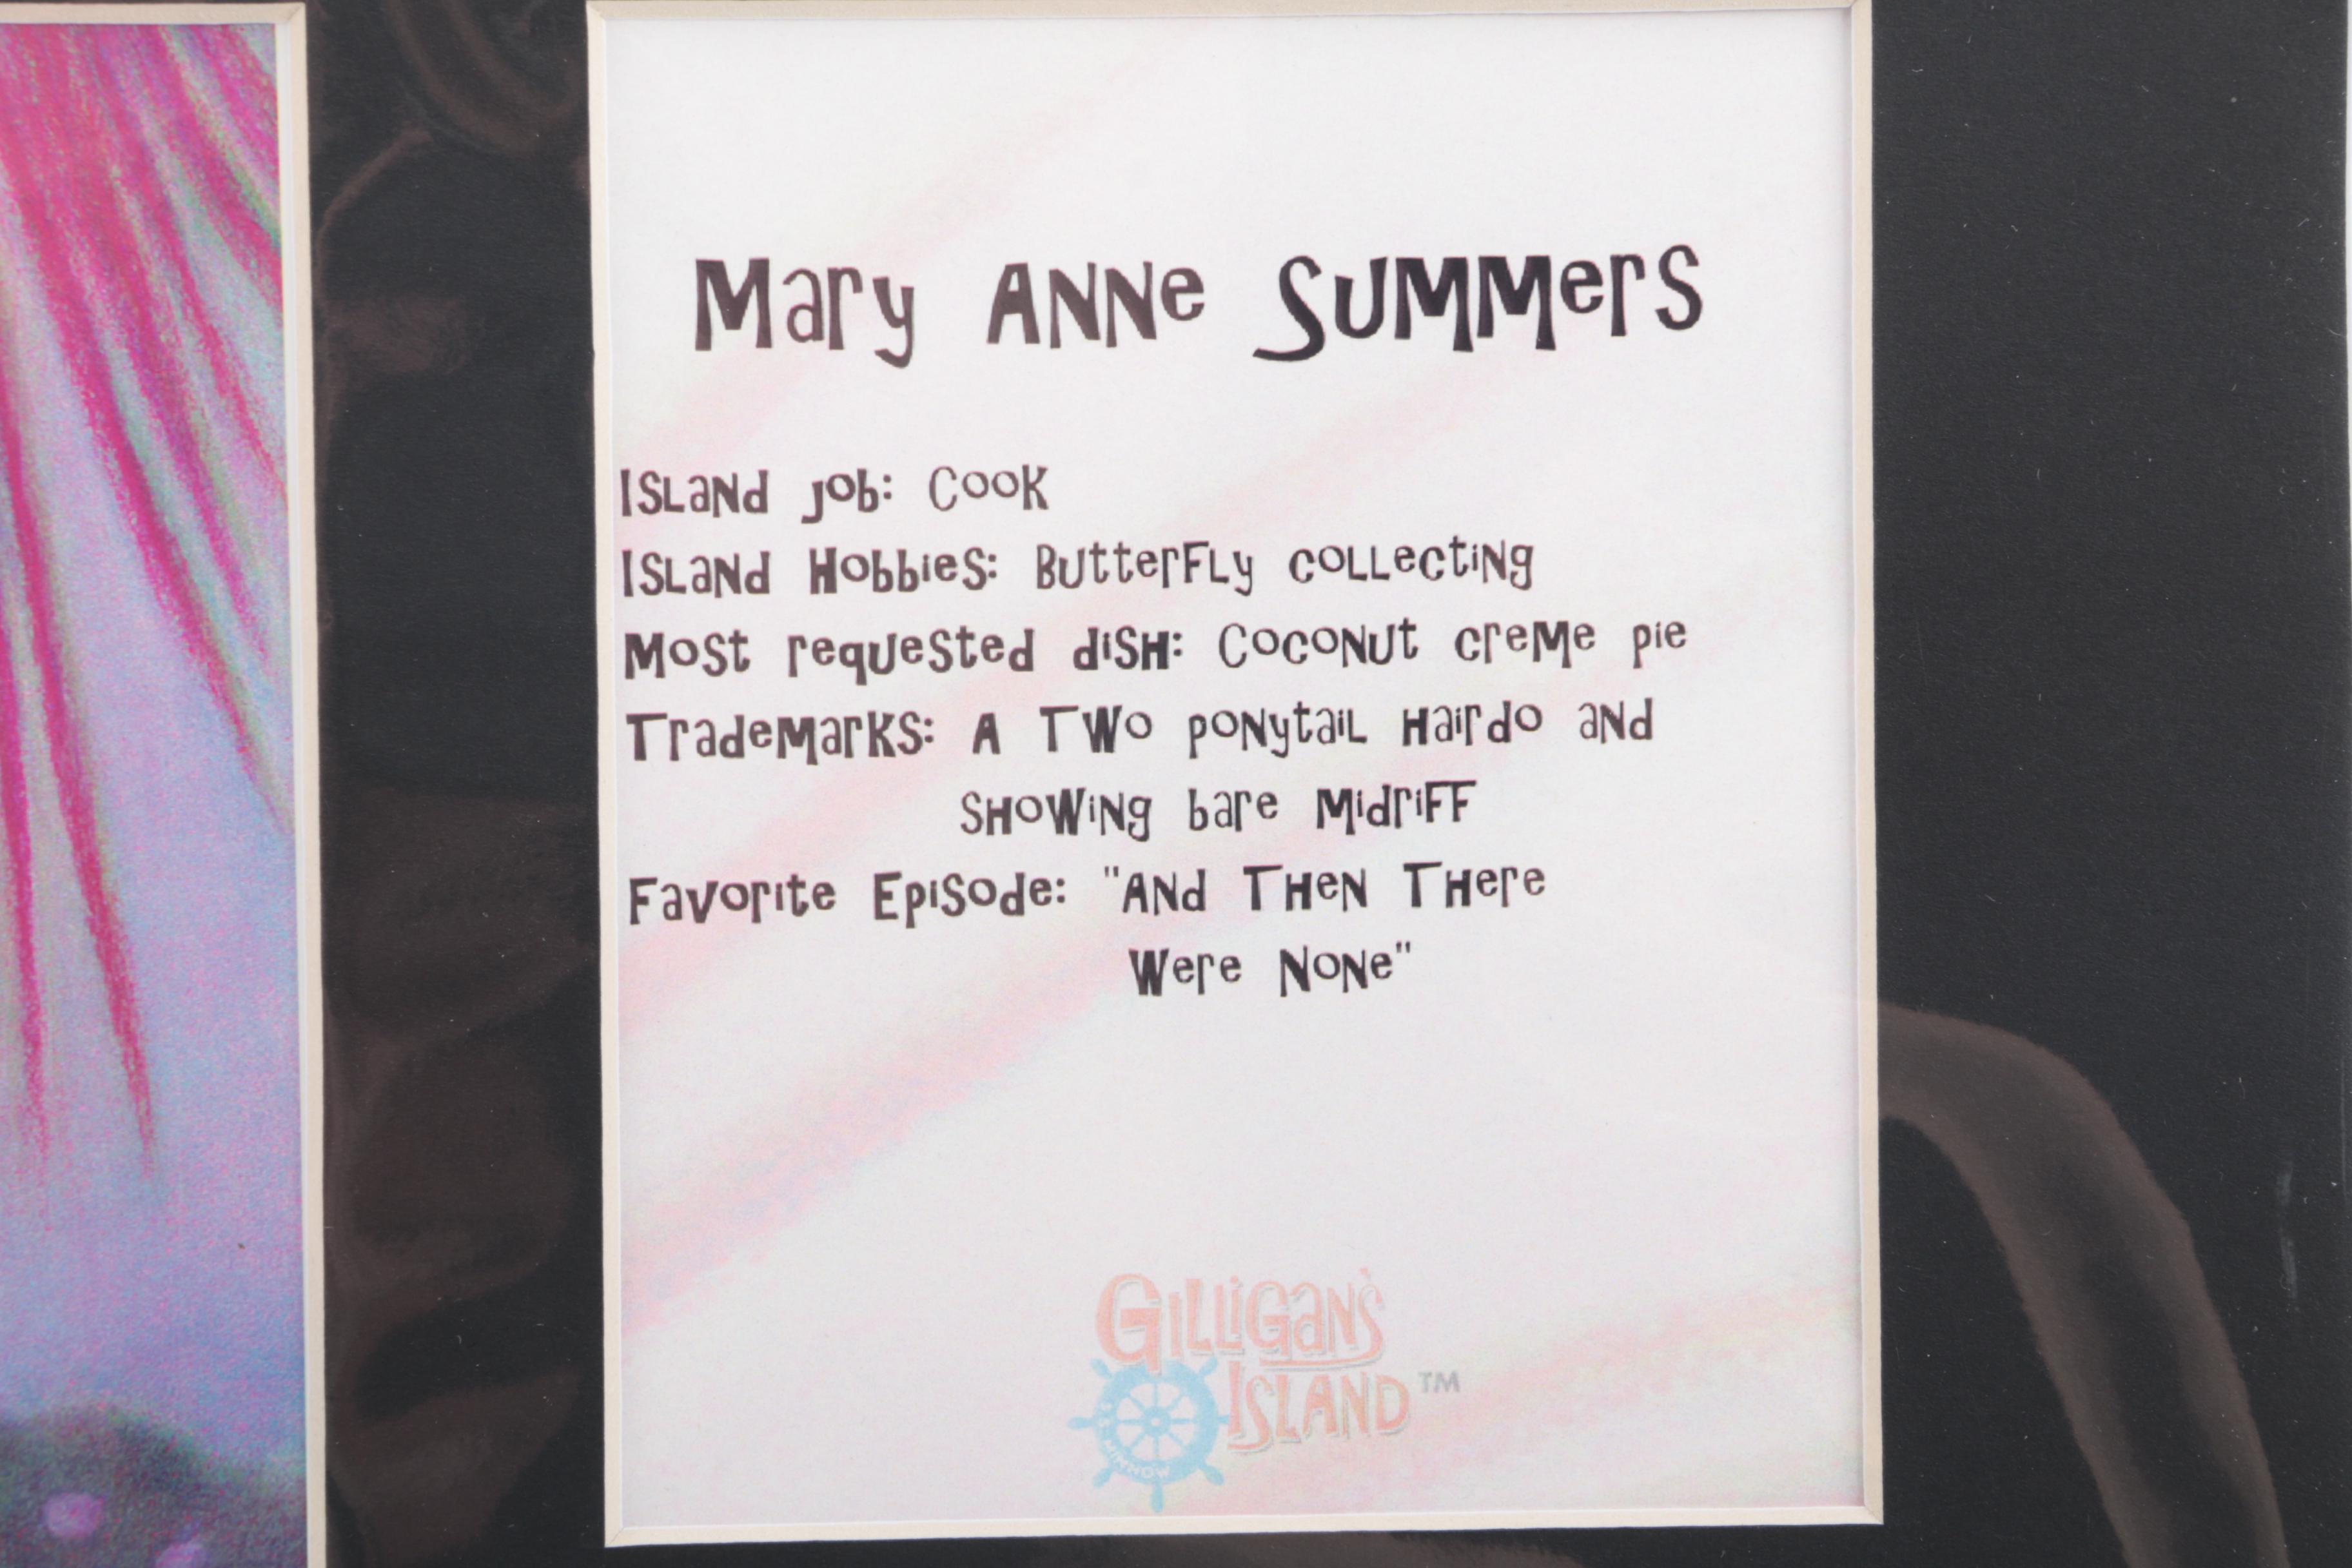 Mary Anne Summers
Island Job: Cook
Island Hobbies: Butterfly collecting
Most requested dish: Coconut creme pie
Trademarks: A Two ponytail hairdo and
showing bare midriff
Favorite Episode: "And Then There
Were None"
Gilligan's
Island™
S.S. MINNOW